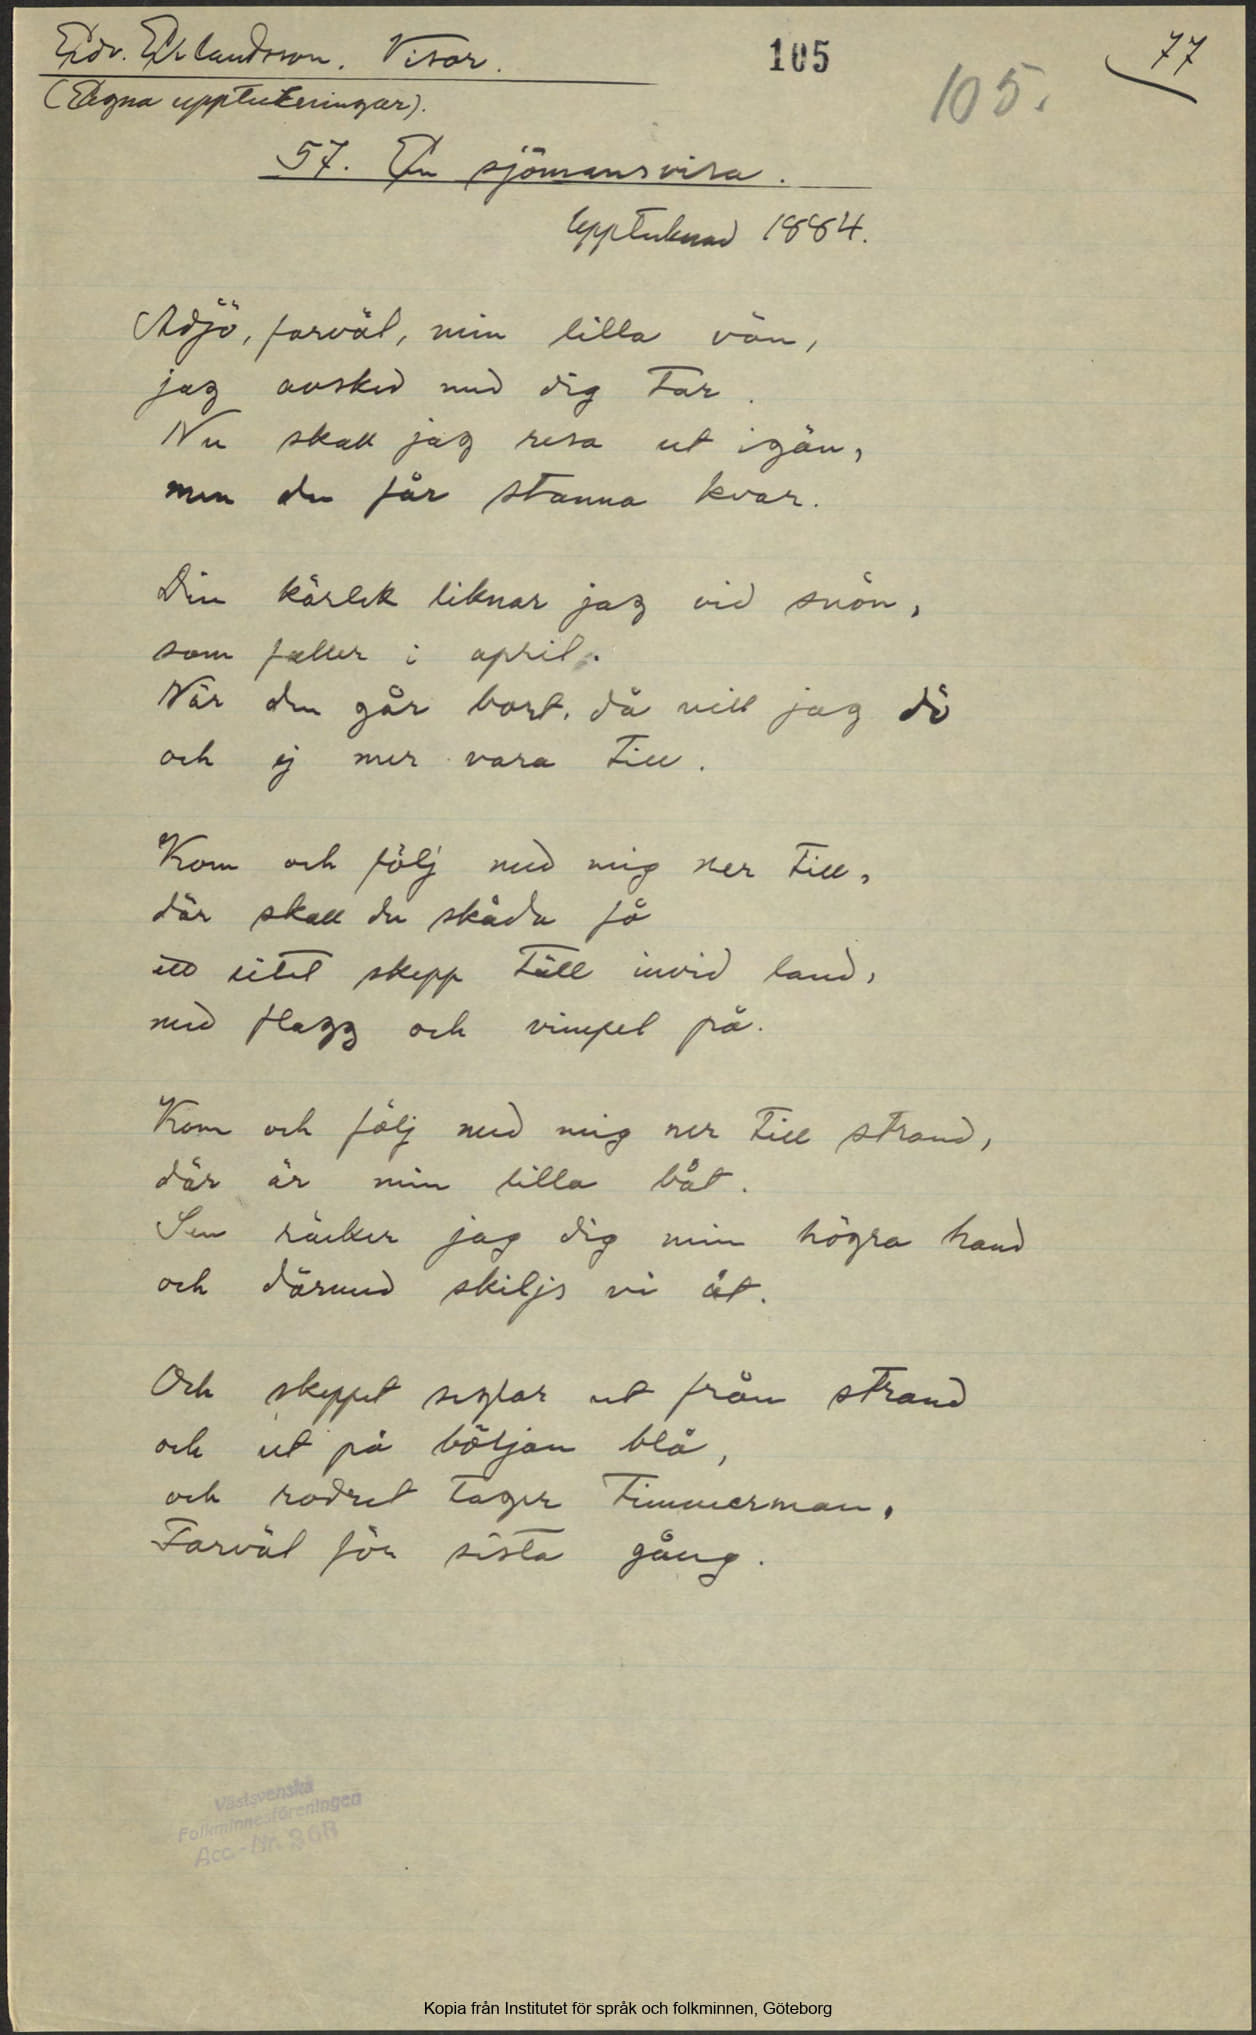 Edv. Erlandsson. Visor.
105
77
105.
(Egna uppteckningar).
57. En sjömansvisa.
Upptecknad 1884.
Adjö, farväl, min lilla vän,
jag avsked med dig tar.
Nu skall jag resa ut igän,
men du får stanna kvar.
Din kärlek liknar jag vid snön,
som faller i april.
När den går bort, då vill jag dö
och ej mer vara till.
Kom och följ med mig ner till,
där skall du skåda få
ett litet skepp tätt invid land,
med flagg och vimpel på.
Kom och följ med mig ner till strand,
där är min lilla båt.
Sen räcker jag dig min högra hand
och därmed skiljs vi åt.
Och skeppet seglar ut från strand
och ut på böljan blå,
och rodret tager timmerman,
Farväl för sista gång.
Västsvenska
Folkminnesföreningen
Acc.-Nr. 368
Kopia från Institutet för språk och folkminnen, Göteborg